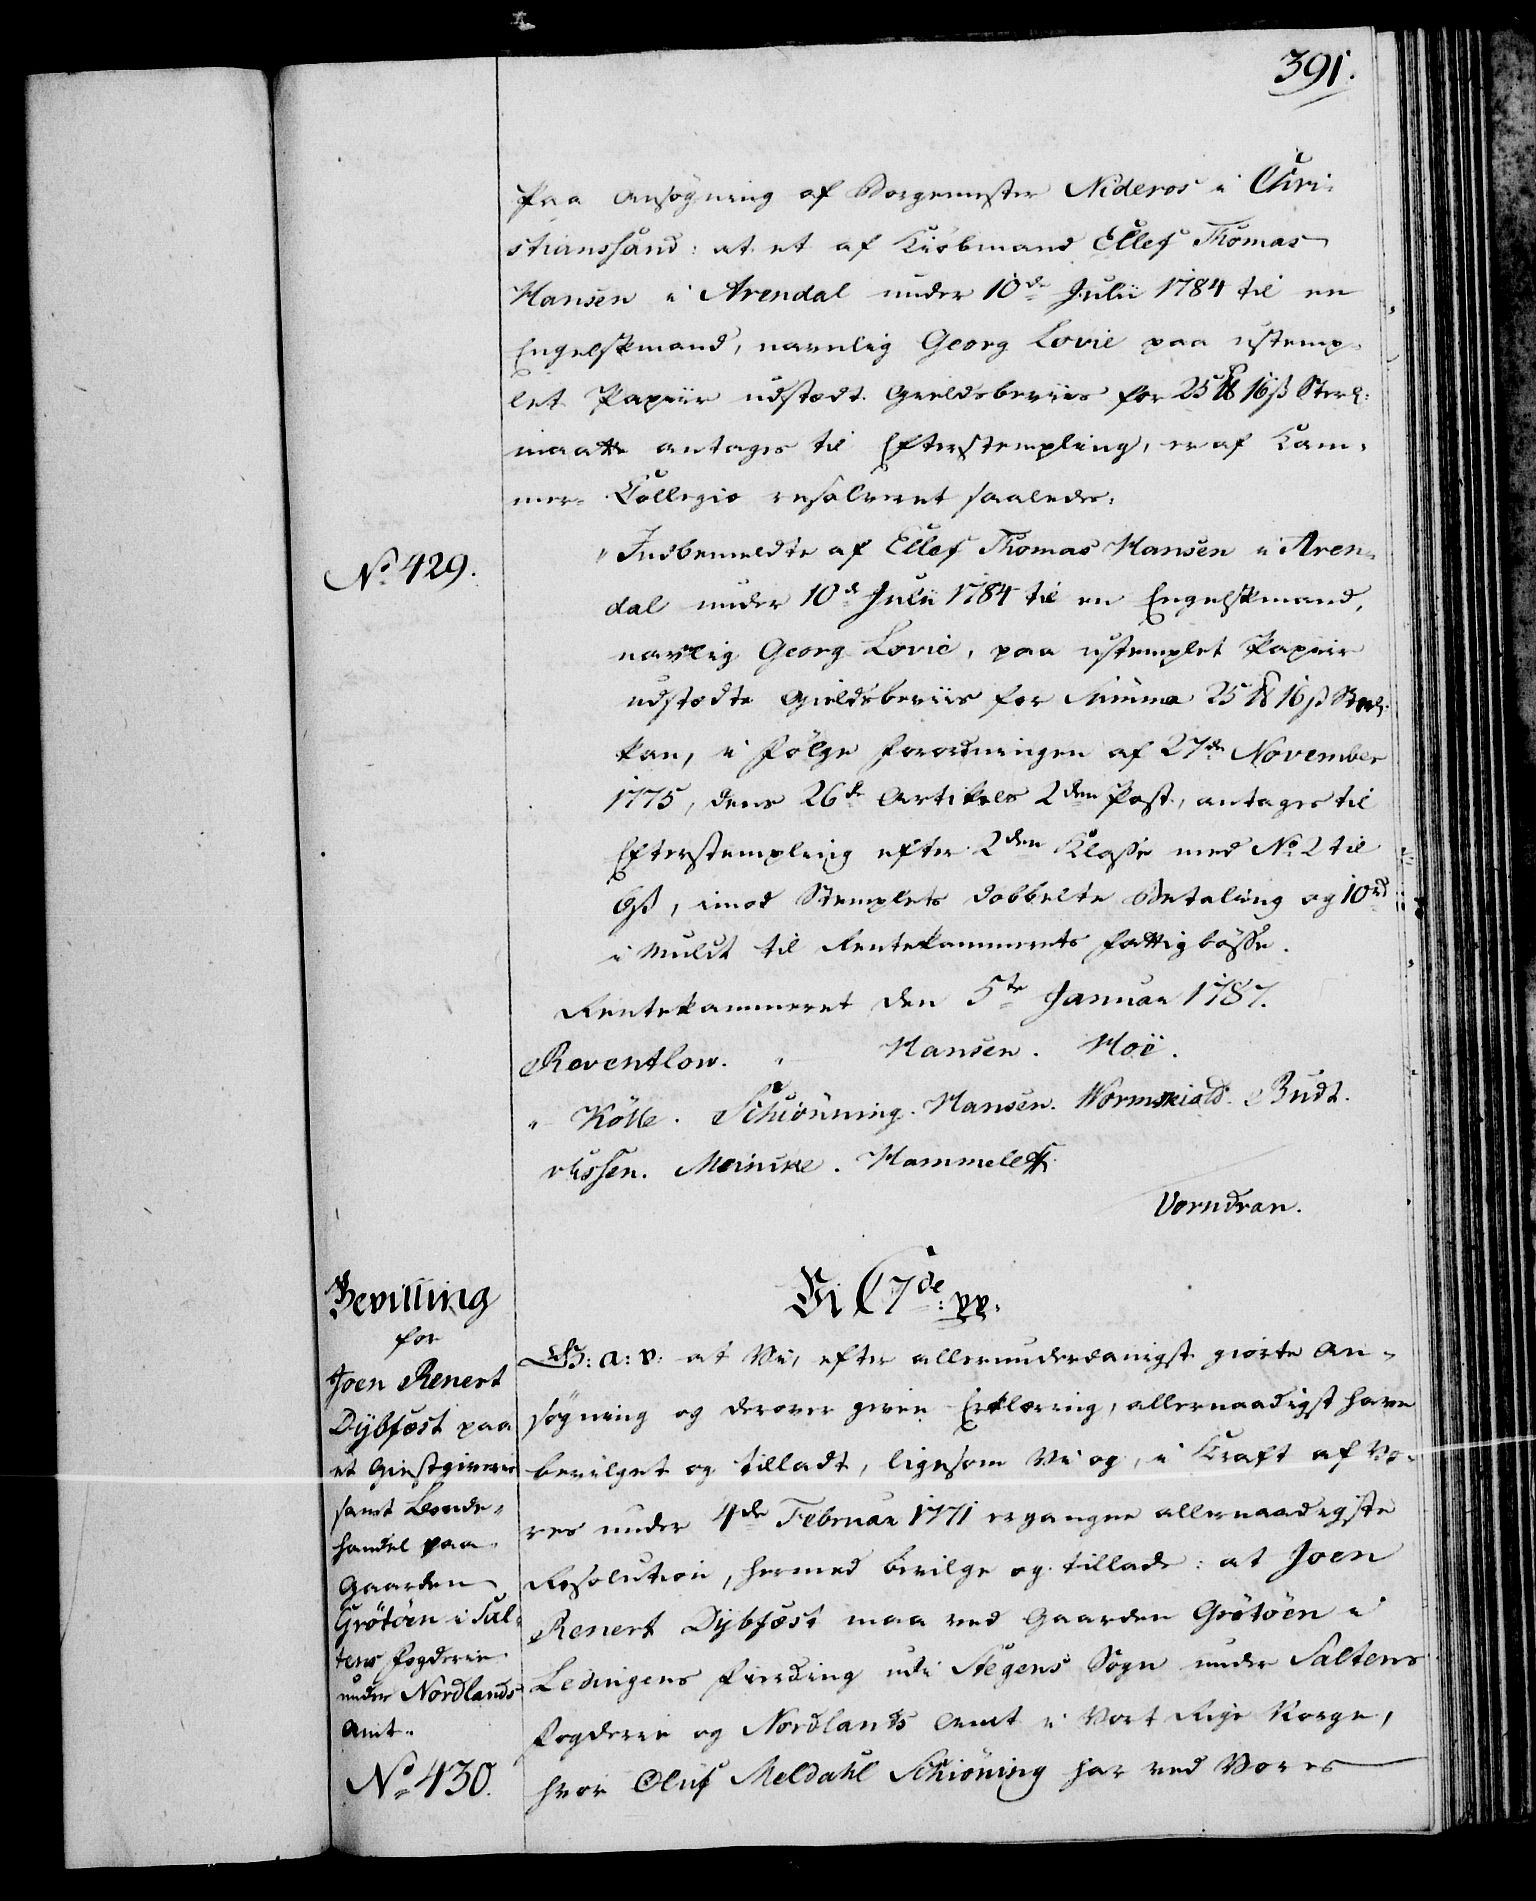 391.
Paa Ansøgning af Borgemester Nideros i Chri-
stianssand: at et af Kiøbmand Ellef Thomas
Hansen i Arendal under 10de Julii 1784 til en
Engelskmand, navnlig Georg Lovie paa ustemp-
let Papiir udstædt Gieldsbeviis for 25 ℔ 16 ß Sterl:
maatte antages til Efterstempling, er af Kam-
mer- Collegio resolveret saaledes:
No 429.
"Indbemeldte af Ellef Thomas Hansen i Aren-
dal under 10de Julii 1784 til en Engelskmand,
navnlig Georg Lovie, paa ustemplet Papiir
udstædte Gieldsbeviis for Summa 25 ℔ 16 ß Sterl:
kan, i Følge Forordningen af 27de November
1775, dens 26de Artikels 2den Post, antages til
Efterstempling efter 2den Klasse med No 2 til
6 ß, imod Stemplets dobbelte Betaling og 10 rd
i Mulct til Rentekammerets Fattigbøsse.
Rentekammeret den 5te Januar 1787.
Reventlow. " Hansen. Moë.
" Kölle. Schiønning. Hansen. Wormskiold. Budt.
Meincke. Hammeleff.
Vorndran.
Vi C 7de: pp.
Bevilling
for
Joen Renert
Dybfost paa
et Giestgiverie
samt Bonde-
handel paa
Gaarden
Grötöen i Sal-
tens Fogderie
under Nordlands
Amt.
No 430.
G: a: v: at Vi, efter allerunderdanigst giorte An-
søgning og derover given Erklæring, allernaadigst have
bevilget og tilladt, ligesom Vi og, i Kraft af Vo-
res under 4de Februar 1771 ergangne allernaadigste
Resolution, hermed bevilge og tillade: at Joen
Renert Dybfost maa ved Gaarden Grötöen i
Ledingens Fierding udi Stegens Sogn under Saltens
Fogderie og Nordlands Amt i Vort Rige Norge,
hvor Oluf Meldahl Schiöning har ved Vores